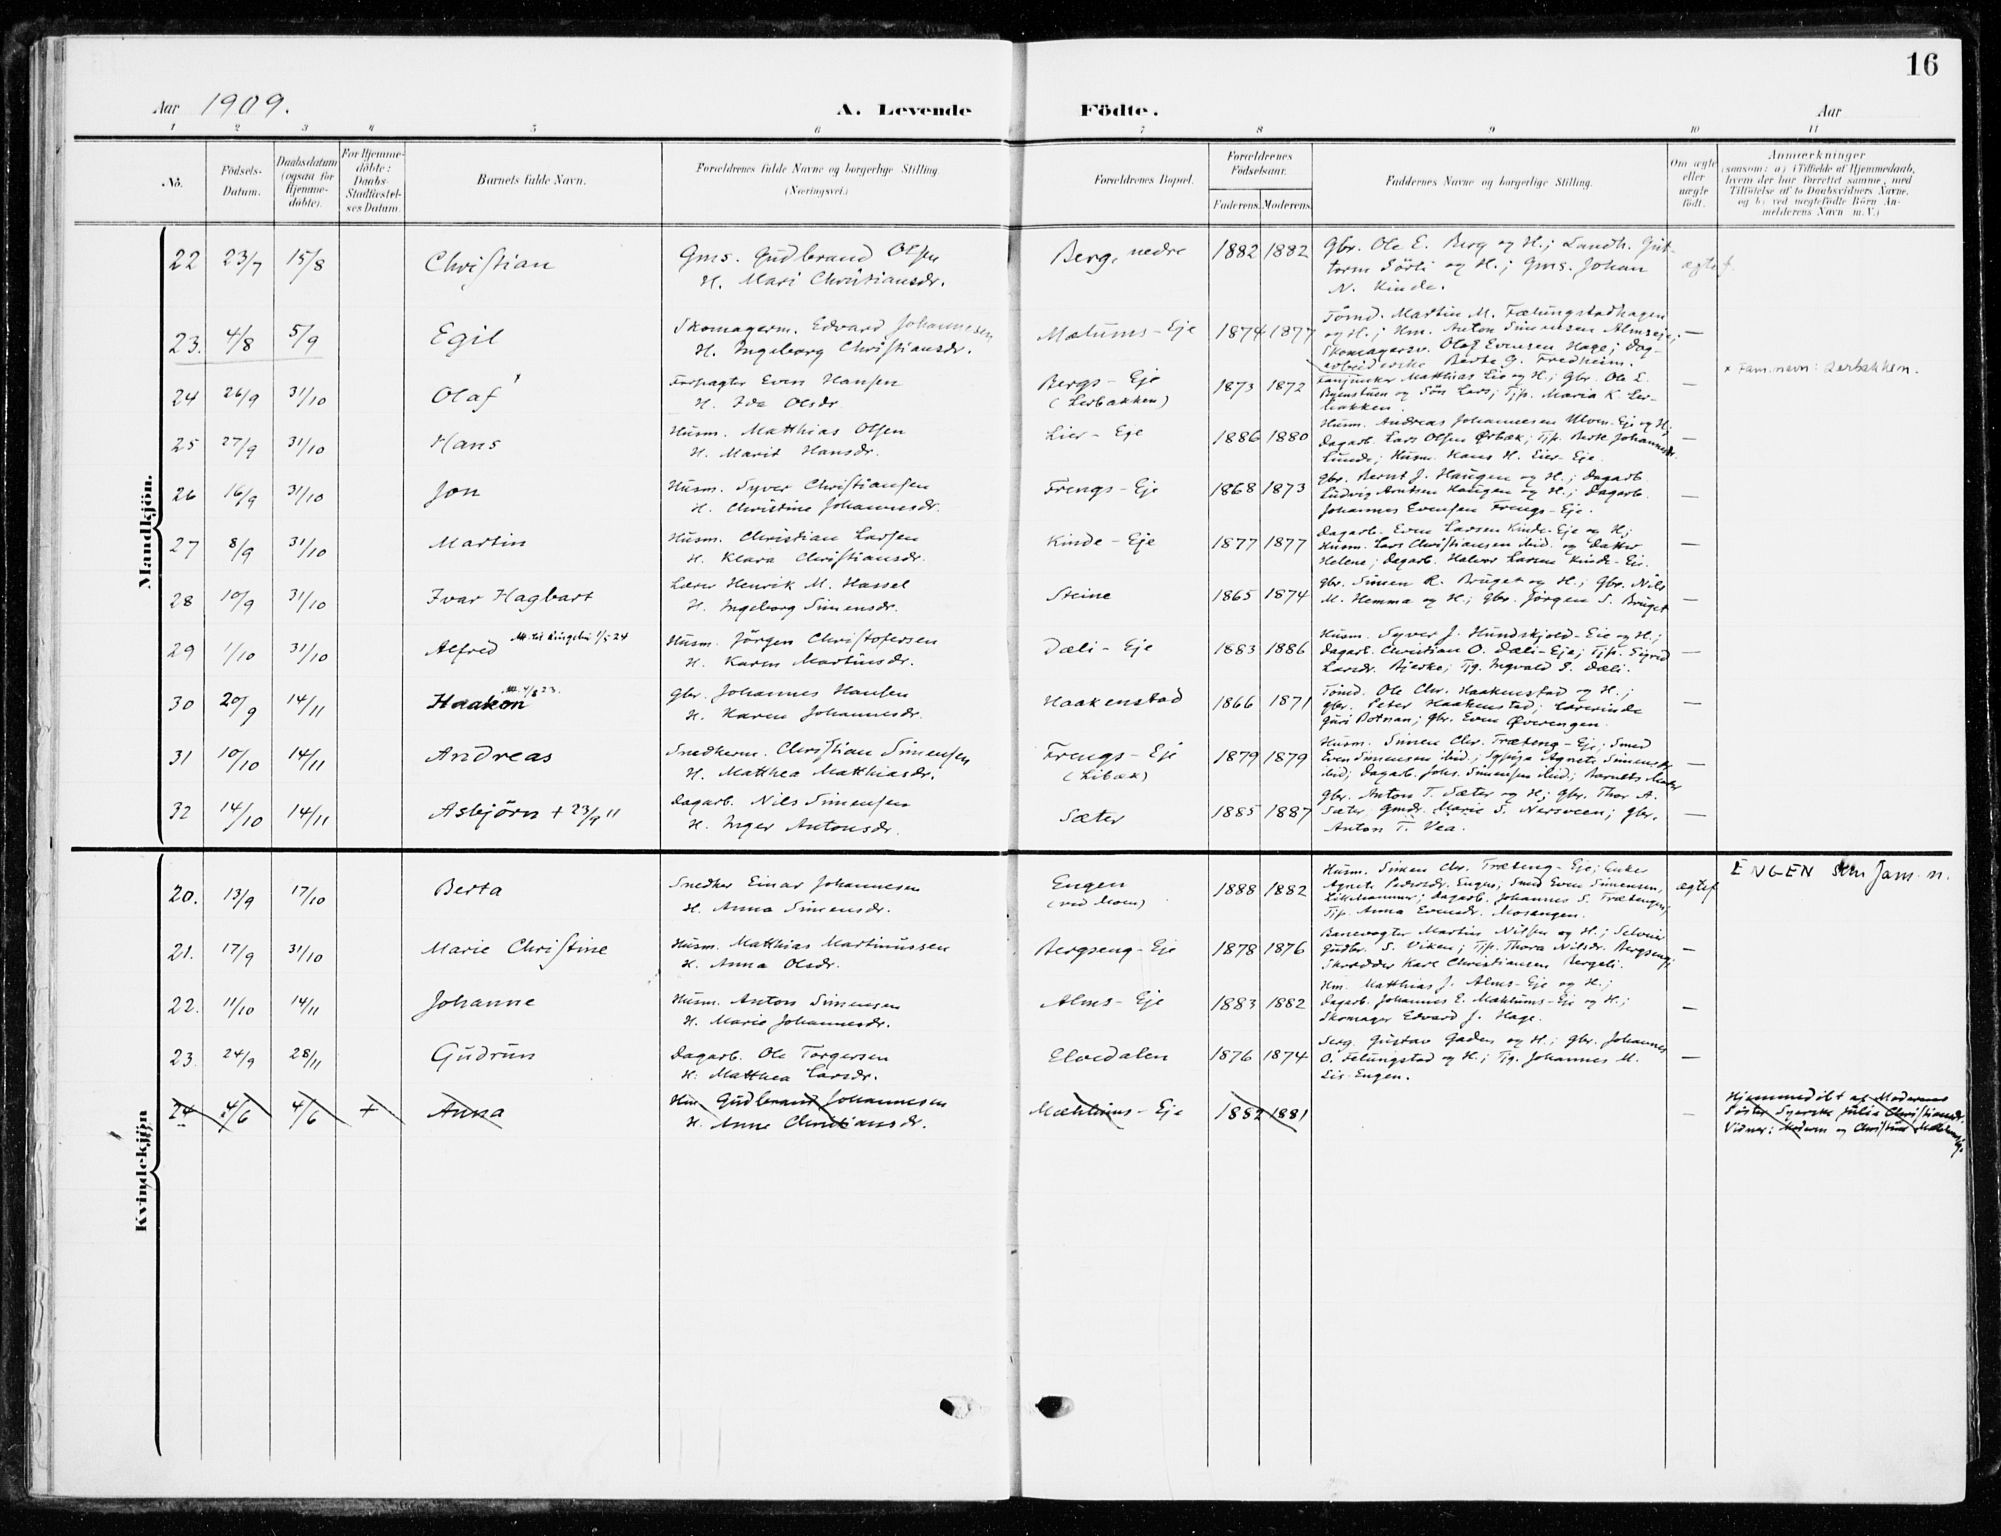 16
Aar 1909. A. Levende Födte. Aar
1 2 3 4 5 6 7 8 9 10 11
No.
Födsels-
Datum.
Daabsdatum
(ogsaa for
Hjemme-
döbte).
For Hjemme-
döbte:
Daabs-
Stadfæstel-
ses Datum.
Barnets fulde Navn.
Forældrenes fulde Navne og borgerlige Stilling.
(Næringsvei.)
Forældrenes Bopæl.
Forældrenes
Födselsaar.
Faderens. Moderens.
Faddernes Navne og borgerlige Stilling.
Om ægte
eller
uægte
födt.
Anmærkninger
(saasom: a) i Tilfælde af Hjemmedaab,
hvem der har forrettet samme, med
Tilföielse af to Daabsvidners Navne,
og b) ved uægtefödte Börn An-
melderens Navn m. V.)
Mandkjön.
22 23/7 15/8 Christian
Gms. Gudbrand Olsen
H. Mari Christiansdr.
Berg, nedre 1882 1882
Gbr. Ole E. Berg og H.; Landh. Gut-
torm Sörli og H.; Gms. Johan
N. Kinde.
ægtef.
23. 4/8 5/9 Egil
Skomagerm. Edvard Johannesen
H. Ingeborg Christiansdr.
Mælums-Eje 1874 1877
Tömd. Martin M. Fælungstadhagen
og H.; Hm. Anton Simensen Almseje;
Skomagersv. Olaf Evensen Hage; Dag-
arbeiderske Berte G. Fredheim.
—
24 26/9 31/10 Olaf x
Forpagter Even Hansen
H. Ida Olsdr.
Bergs-Eje
(Lerbakken)
1873 1872
Fanjunker Matthias Lie og H.; Gbr. Ole L.
og Sön Lars; Tjp. Maria K. Ler-
bakken.
—
x Fam.navn: Lerbakken.
25 27/9 31/10 Hans
Husm. Matthias Olsen
H. Marit Hansdr.
Lier-Eje 1886 1880
Husm. Andreas Johannesen Ulven-Eje og H.;
Dagarb. Lars Olsen Ørbæk; Tjp. Berte Johannesdr.
Lunde; Husm. Hans H. Lier-Eje.
—
26 16/9 31/10 Jon
Husm. Syver Christiansen
H. Christine Johannesdr.
Frengs-Eje 1868 1873
Gbr. Bernt J. Haugen og H.; Dagarb.
Ludvig Arntsen Haugen og H.; Dagarb.
Johannes Evensen Frengs-Eje.
—
27 8/9 31/10 Martin
Husm. Christian Larsen
H. Klara Christiansdr.
Kinde-Eje 1877 1877
Dagarb. Even Larsen Kinde-Eje og H.;
Husm. Lars Christiansen ibid. og Datter
Helene; Dagarb. Halvor Larsen Kinde-Eje.
—
28 10/9 31/10 Ivar Hagbart
Lærer Henrik M. Hassel
H. Ingeborg Simensdr.
Steine 1865 1874
Gbr. Simen R. Bruget og H.; Gbr. Nils
M. Hemma og H.; Gbr. Jörgen S. Bruget
—
29 1/10 31/10 Alfred Utt. til Ringebu 1/5 24
Husm. Jörgen Christofersen
H. Karen Martinsdr.
Dæli-Eje 1883 1886
Husm. Syver J. Hundskjold-Eie og H.;
Dagarb. Christian O. Dæli-Eje; Tjp. Sigrid
Larsdr. Bjerke; Tjg. Ingvald S. Dæli.
—
30 20/9 14/11 Haakon
Gbr. Johannes Hansen
H. Karen Johannesdr.
Haakenstad 1866 1871
Tömd. Ole Chr. Haakenstad og H.;
Gbr. Peter Haakenstad; Lærerinde
Guri Botnan; Gbr. Even Øverengen.
—
31 10/10 14/11 Andreas
Snedkerm. Christian Simensen
H. Matthea Matthiasdr.
Frengs-Eje
(Libæk)
1879 1879
Husm. Simen Chr. Træteng-Eje; Smed
Even Simensen ibid.; Sypige Agnete Simensdr.
ibid; Dagarb. Johs. Simensen ibid; Barnets Moder
—
32 14/10 14/11 Asbjörn + 23/9 11
Dagarb. Nils Simensen
H. Inger Antonsdr.
Sæter 1885 1887
Gbr. Anton T. Sæter og H; Gbr. Thor A.
Sæter; Gmdr. Marie S. Nersveen; Gbr.
Anton T. Vea.
—
Kvindekjön
20. 13/9 17/10 Berta
Snedker Einar Johannesen
H. Anna Simensdr.
Engen
(ved Moen)
1888 1882
Husm. Simen Chr. Træteng-Eje; Enke
Agnete Pedersdr. Engen; Smed Even Simensen,
Lillehammer; Dagarb. Johannes S. Trætengen;
Tjp. Anna Evensdr. Mosangen.
ægtef
ENGEN som fam. n.
21. 17/9 31/10 Marie Christine
Husm. Matthias Martinussen
H. Anna Olsdr.
Bergseng-Eje 1878 1876
Banevogter Martin Nilsen og H.; Selveier
Gudbr. S. Viken; Tjp. Thora Nilsdr. Bergseng;
Skrædder Karl Christiansen Bergeli.
—
22. 11/10 14/11 Johanne
Husm. Anton Simensen
H. Marie Johannesdr.
Alms-Eje 1883 1882
Hm. Matthias J. Alms-Eje og H.;
Dagarb. Johannes E. Mæhlums-Eje og H.;
Skomager Edvard J. Hage.
—
23. 24/9 28/11 Gudrun
Dagarb. Ole Torgersen
H. Matthea Larsdr.
Elvedalen 1876 1874
Serg. Gustav Gaden og H.; Gbr. Johannes
O. Felungstad og H.; Tjg. Johannes M.
Lie-Engen.
—
24 4/6 4/6 + Anna
Hm. Gudbrand Johannesen
H. Anne Christiansdr.
Mæhlums-Eje 1882 1881
—
Hjemmedöbt af Moderens
Söster Syerske Julia Christiansdr.
Vidner: Moderen og Christine Mæhlumseje.